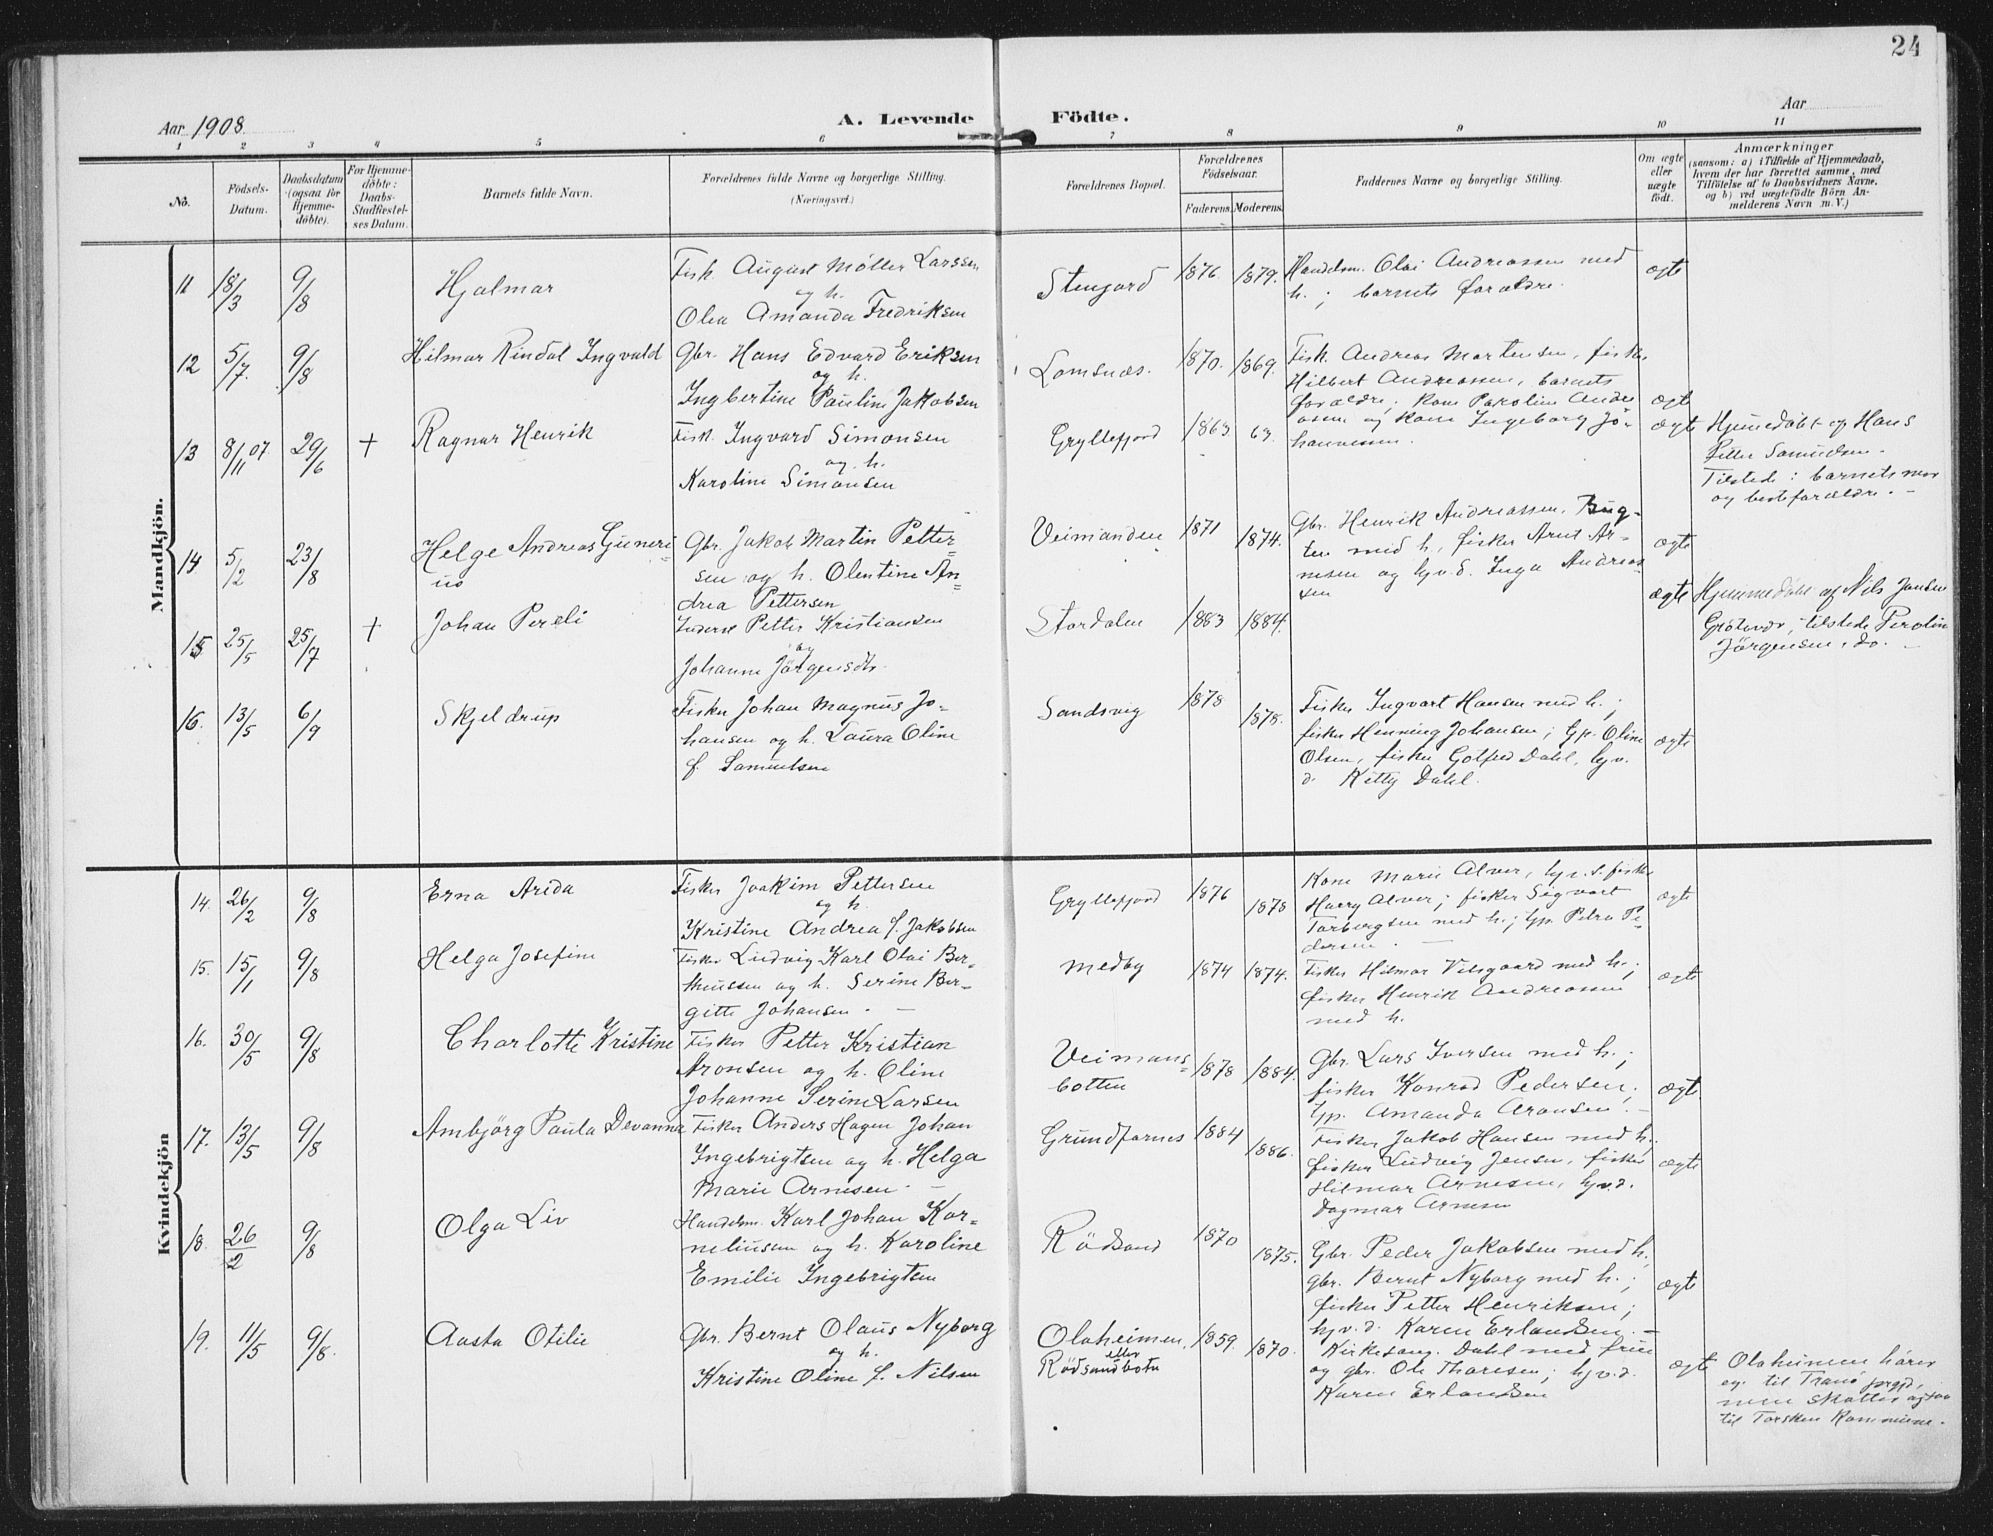 24
Aar 1908
A. Levende Födte.
Aar
1 2 3 4 5 6 7 8 9 10 11
No.
Födsels-Datum.
Daabsdatum (ogsaa for Hjemmedöbte).
For Hjemmedöbte: Daabs-Stadfæstelses Datum.
Barnets fulde Navn.
Forældrenes fulde Navne og borgerlige Stilling. (Næringsvei.)
Forældrenes Bopæl.
Forældrenes Födselsaar.
Faderens Moderens
Faddernes Navne og borgerlige Stilling.
Om ægte eller uægte födt.
Anmærkninger
(saasom: a) i Tilfælde af Hjemmedaab, hvem der har forrettet samme, med Tilföielse af to Daabsvidners Navne, og b) ved uægtefödte Börn Anmelderens Navn m. V.)
Mandkjön.
11 18/3 9/8 Hjalmar
Fisk. August Möller Larssen
og h.
Olea Amanda Fredriksen
Stengard 1876. 1879.
Handelsm. Olai Andreassen med
h.; barnets forældre.
ægte
12 5/7. 9/8 Hilmar Rindal Ingvald
Gbr. Hans Edvard Eriksen
og h.
Ingbertine Pauline Jakobsen
Lomsnæs. 1870. 1869.
Fisk. Andreas Mortensen, fisker
Hilbert Andreassen, barnets
forældre; kone Karoline Andre
asen og kone Ingeborg Jo-
hannesen.
ægte
13 8/11 07. 29/6 + Ragnar Henrik
Fisk. Ingvard Simonsen
og h.
Karoline Simonsen
Gryllefjord 1863 63.
ægte
Hjemedöbt af Hans
Petter Samuelsen.
Tilstede: barnets mor
og bedsteforældre. -
14 5/2 23/8 Helge Andreas Guneri=
us
Gbr. Jakob Martin Petter=
sen og h. Olentine An=
drea Pettersen
Veimanden 1871 1874.
Gbr. Henrik Andreassen,
med h., fisker Arnt Ar-
nesen og hjv. d. Inga Andreas
sen
ægte
15 25/5 25/7 + Johan Pereli
Inderst Petter Kristiansen
og
Johanne Jörgensdtr.
Stordalen 1883 1884.
ægte
Hjemmedöbt af Nils Jansen
Grötavær, tilstede Perolin
Jörgensen, do. -
16. 13/5 6/9 Skjeldrup
Fisker Johan Magnus Jo-
hansen og h. Laura Oline
f. Samuelsen
Sandsvig 1878 1878.
Fisker Ingvart Hansen med h.;
fisker Henning Johansen; hp. Oline
Olsen, fisker Gotfred Dahl, hjv.
d. Kitty Dahl.
ægte
Kvindekjön
14. 26/2 9/8 Erna Arida
Fisker Joakim Pettersen
og h.
Kristine Andrea f. Jakobsen
Gryllefjord 1876 1878
Kone Marie Alver, fisker
Harry Alver; fisker Sigvart
Torbergsen med h.; hp. Petra Pe-
dersen. -
ægte
15. 15/1 9/8 Helga Josefine
Fisker Ludvig Karl Olai Ber-
theussen og h. Serine Ber-
gitte Johansen. -
Medby 1874 1874.
Fisker Hilmar Vilsgaard med h.;
fisker Henrik Andreassen
med h.
ægte
16. 30/5 9/8 Charlotte Kristine
Fisker Petter Kristian
Aronsen og h. Oline
Johanne Serine Larsen
Veimans=
botten 1878 1884.
Gbr. Lars Iversen med h.;
fisker Konrad Pedersen;
hp. Amanda Aronsen. -
ægte
17. 13/5 9/8 Ambjörg Paula Devanna
Fisker Anders Hagen Johan
Ingebrigtsen og h. Helga
Marie Arnesen. -
Grundfarnes 1884 1886.
Fisker Jakob Hansen med h.;
fisker Ludvig Jensen, fisker
Hilmar Arnesen, hjv. d.
Dagmar Arnesen
ægte
18. 26/2 9/8 Olga Liv
Handelsm. Karl Johan Kor=
neliusen og h. Karoline
Emilie Ingebrigtsen
Rödsand 1870 1875.
Gbr. Peder Jakobsen med h.,
gbr. Bernt Nyborg med h.;
fisker Petter Henriksen;
hjv. d. Karen Erlandsen. -
ægte
19. 11/5 9/8. Aasta Otilie
Gbr. Bernt Olaus Nyborg
og h.
Kristine Oline f. Nilsen
Olaheimen,
eller
Rödsandbotn 1859. 1870.
Kirkesang. Dahl med frue
og gbr. Ole Thoresen; hjv. d.
Karen Erlandsen
ægte
Olaheimen hörer
eg. til Tranö prgjd,
men skatter ogsaa
til Torsken Kommune.